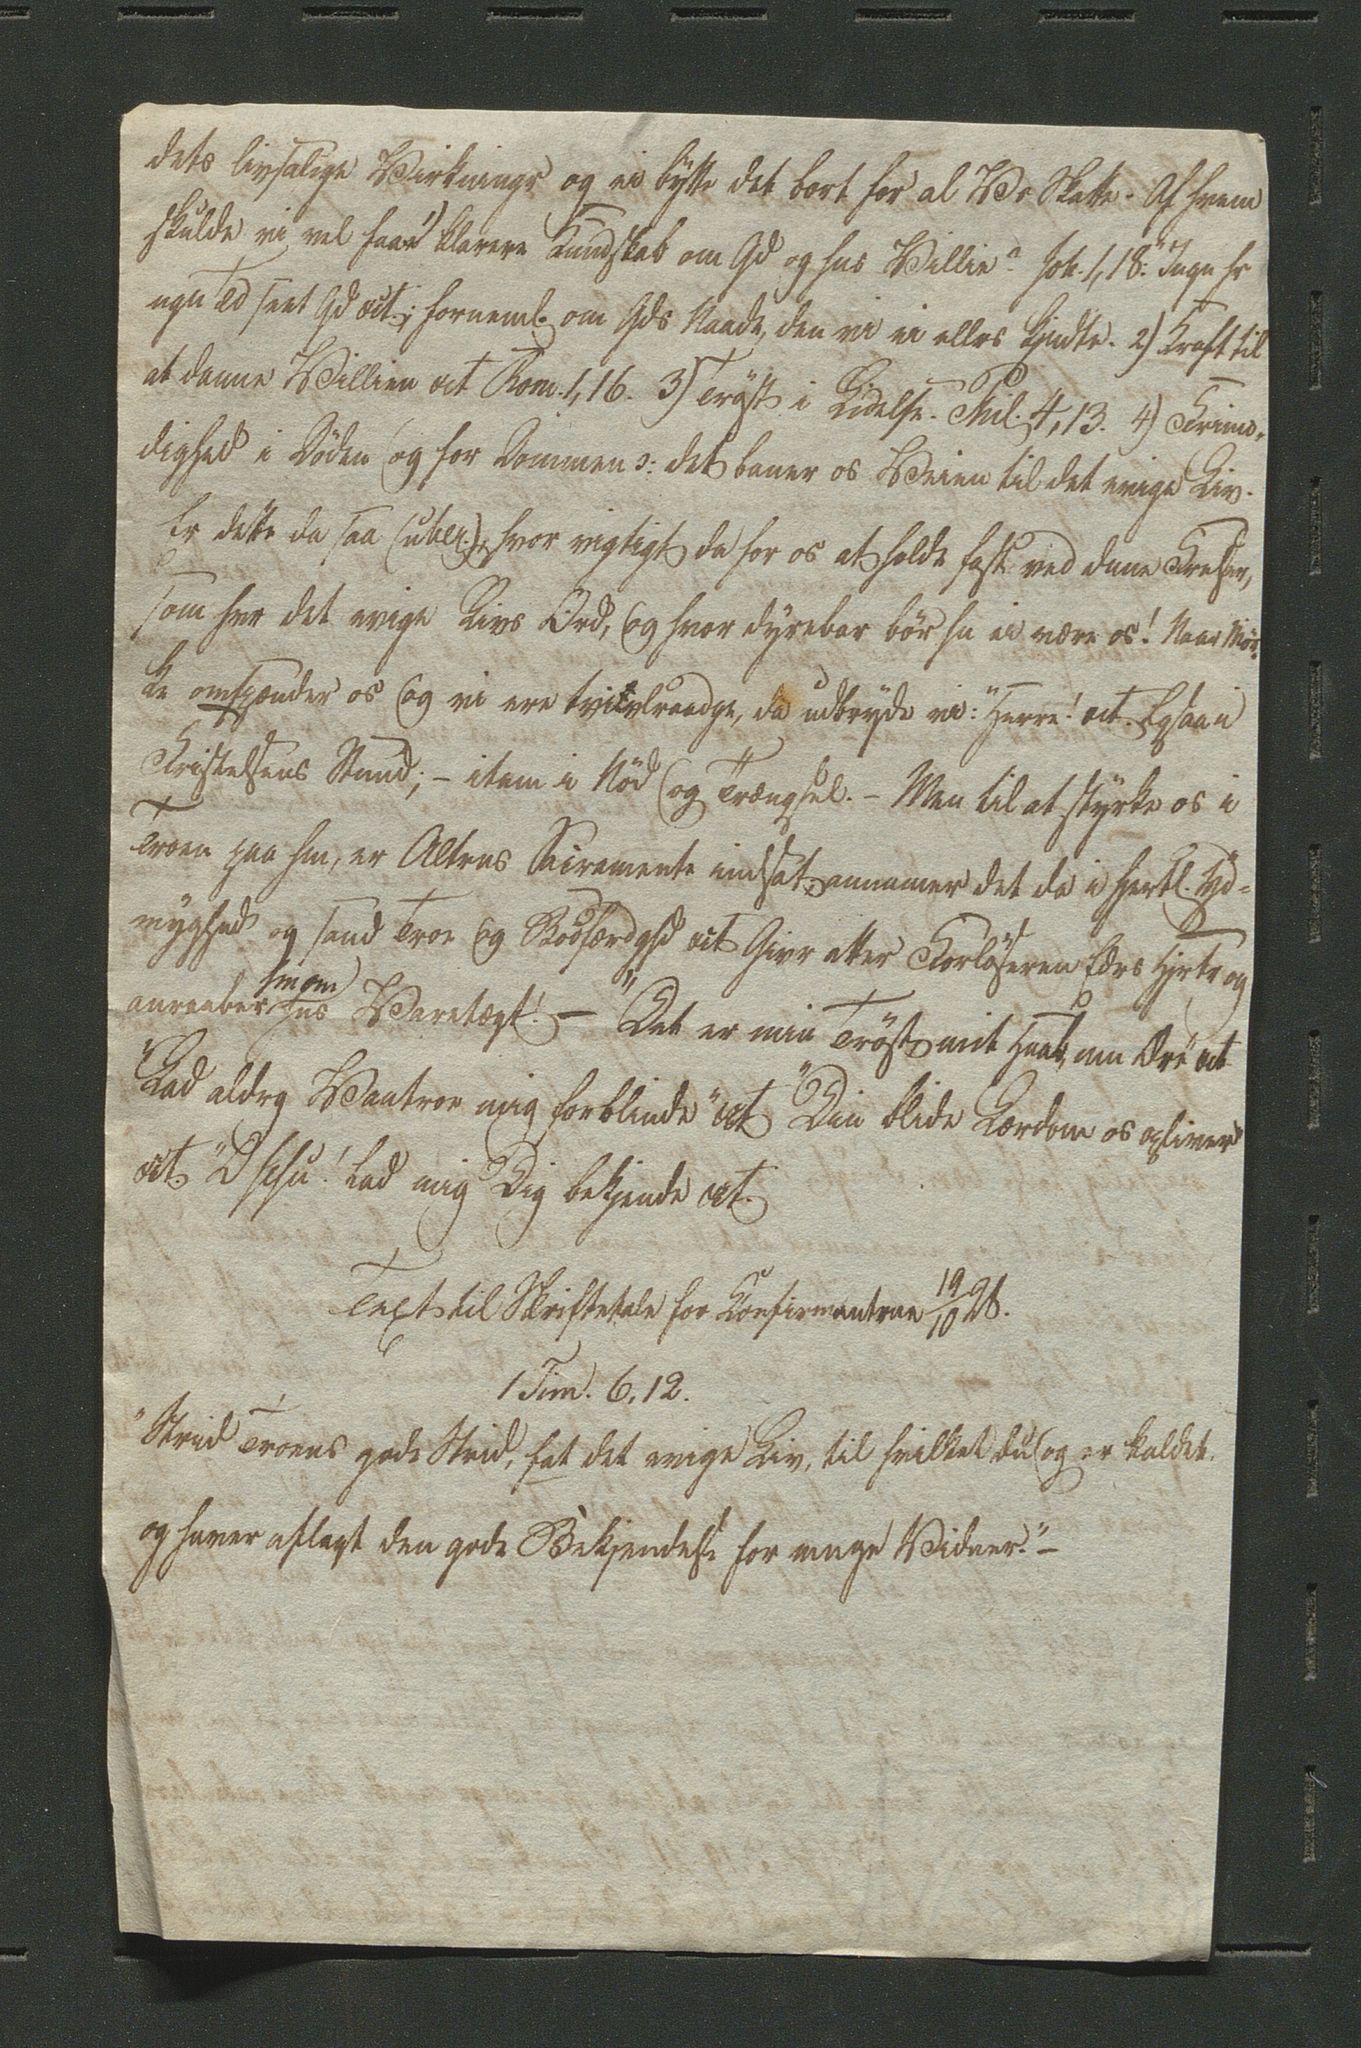 dets livsalige Virkninger og ei bytte det bort for al Vs Skatte. Af hvem
skulde vi vel faae 1) klarere Kundskab om Gd og hns Villie? Joh. 1,18. "Ingn hr
ngn Td seet Gd" oct; forneml. om Gds Naade, den vi ei ellrs kjndte. 2) Kraft til
at danne Villien oct Rom. 1,16. 3) Trøst i Lidelse. Phil. 4,13. 4) Frimo-
dighed i Døden og for Dommen ɔ: det baner os Veien til det evige Liv.
Er dette da saa (ubl.), hvor vigtigt da for os at holde fast ved dnne Frelser,
som hvr det evige Livs Ord, og hvor dyrebar bör hn ei være os! Naar Mør-
ke omspænder os og vi ere tvivlraadge, da udbryde vi: "Herre!" oct. Ogsaa i
Fristelsens Stund; - item i Nød og Trængsel. - Men til at styrke os i
Troen paa hm, er Altrns Sacramente indsat, annamer det da i hjertl. Yd-
myghed og sand Troe og Bodfærdghd oct Givr atter Forløseren Edrs Hjrtr og
anraaber hm om hns Varetægt! - "Det er min Trøst, mit Haab, min Ære" oct
"Lad aldrg Vantroe mig forblinde" oct "Din blide Lærdom os opliver"
oct. "O Jesu! lad mig Dig bekjende oct.
Text til Skriftetale for Confirmantrne 19/10 28.
1 Tim. 6,12.
"Strid Troens gode Strid, fat det evige Liv, til hvilket du og er kaldet,
og haver aflagt den gode Bekjendelse for mnge Vidner." -